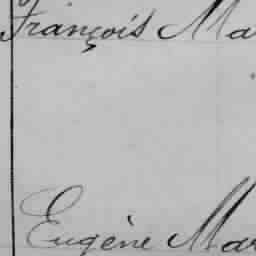 François Ma
Eugène Mar